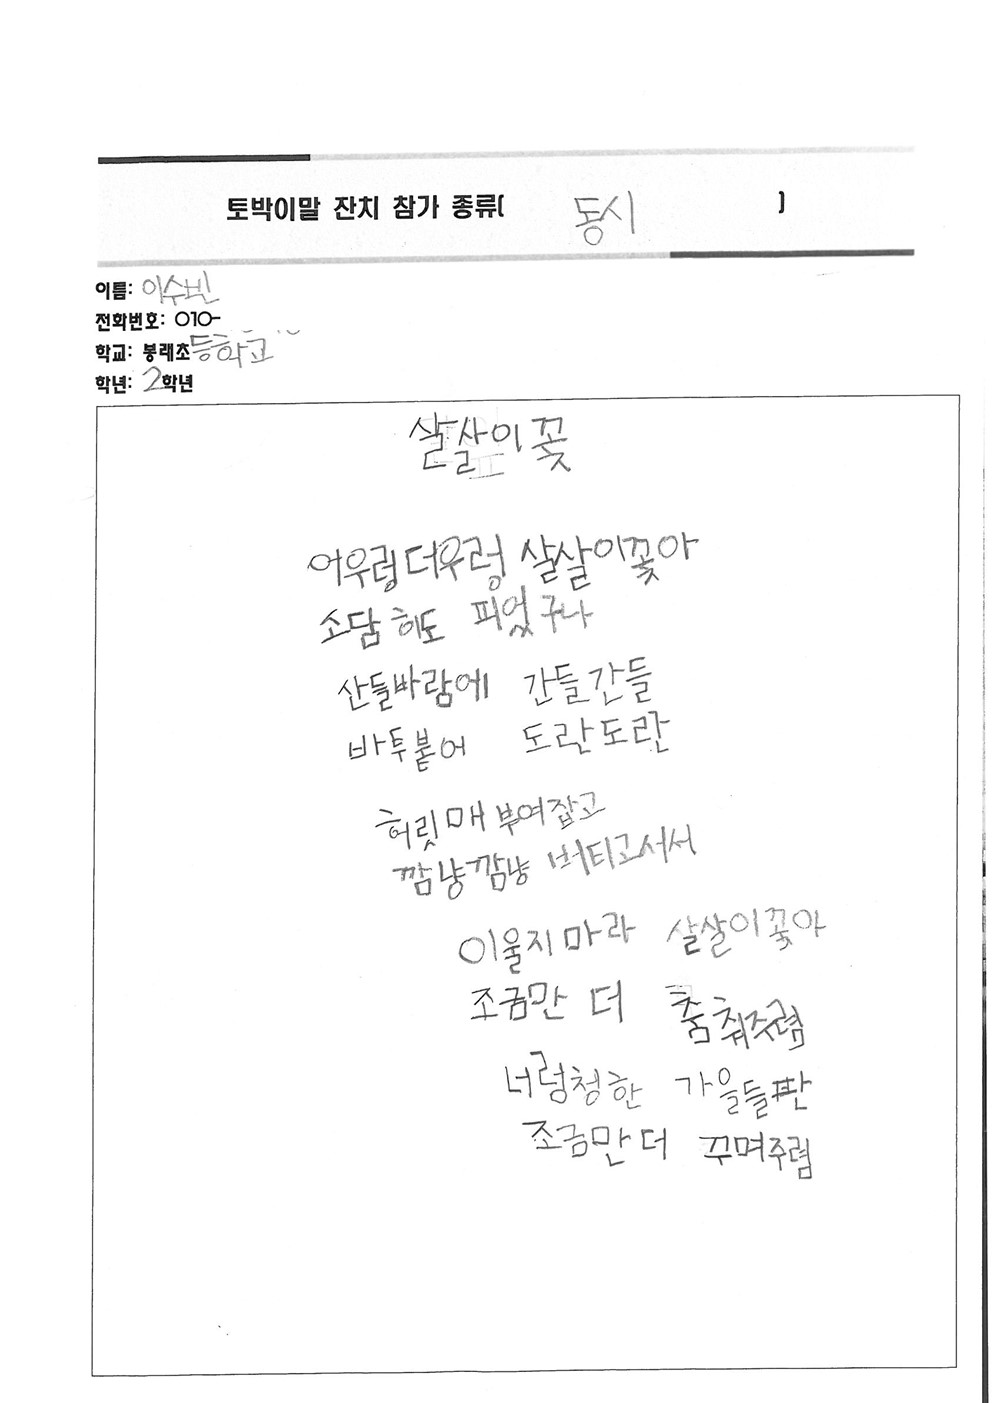 토박이말 잔치 참가 종류( 동시 )
이름: 이수빈
전화번호: 010-
학교: 봉래초등학교
학년: 2학년
살살이꽃
어우렁더우렁 살살이꽃아
소담히도 피었구나
산들바람에 간들간들
바투붙어 도란도란
허릿매 부여잡고
깜냥깜냥 버티고서서
이울지마라 살살이꽃아
조금만 더 춤춰주렴
너렁청한 가을들판
조금만 더 꾸며주렴